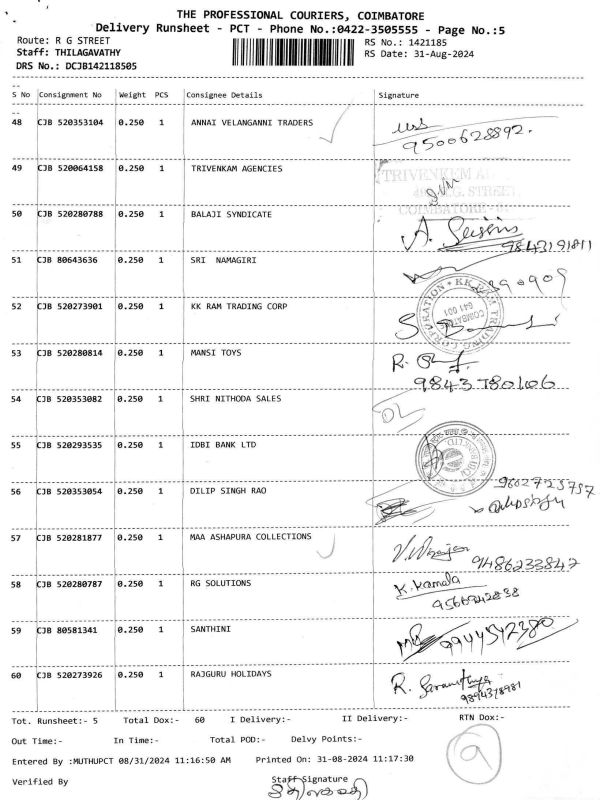 THE PROFESSIONAL COURIERS, COIMBATORE
Delivery Runsheet - PCT - Phone No.:0422-3505555 - Page No.:5
Route: R G STREET
RS No.: 1421185
Staff: THILAGAVATHY
RS Date: 31-Aug-2024
DRS No.: DCJB142118505
S No Consignment No Weight PCS Consignee Details Signature
48 CJB 520353104 0.250 1 ANNAI VELANGANNI TRADERS
9500628892.
49 CJB 520064158 0.250 1 TRIVENKAM AGENCIES
TRIVENKEM
STREET,
COIMBATORE
50 CJB 520280788 0.250 1 BALAJI SYNDICATE
9843191811
51 CJB 80643636 0.250 1 SRI NAMAGIRI
52 CJB 520273901 0.250 1 KK RAM TRADING CORP
KK RAM TRADING CORPORATION
641 001
53 CJB 520280814 0.250 1 MANSI TOYS
R.
54 CJB 520353082 0.250 1 SHRI NITHODA SALES
55 CJB 520293535 0.250 1 IDBI BANK LTD
56 CJB 520353054 0.250 1 DILIP SINGH RAO
57 CJB 520281877 0.250 1 MAA ASHAPURA COLLECTIONS
9486233847
58 CJB 520280787 0.250 1 RG SOLUTIONS
K. Kamala
9566942838
59 CJB 80581341 0.250 1 SANTHINI
9944542380
60 CJB 520273926 0.250 1 RAJGURU HOLIDAYS
R.
9894378981
Tot. Runsheet:- 5 Total Dox:- 60 I Delivery:- II Delivery:- RTN Dox:-
Out Time:- In Time:- Total POD:- Delvy Points:-
9
Entered By :MUTHUPCT 08/31/2024 11:16:50 AM Printed On: 31-08-2024 11:17:30
Verified By Staff Signature